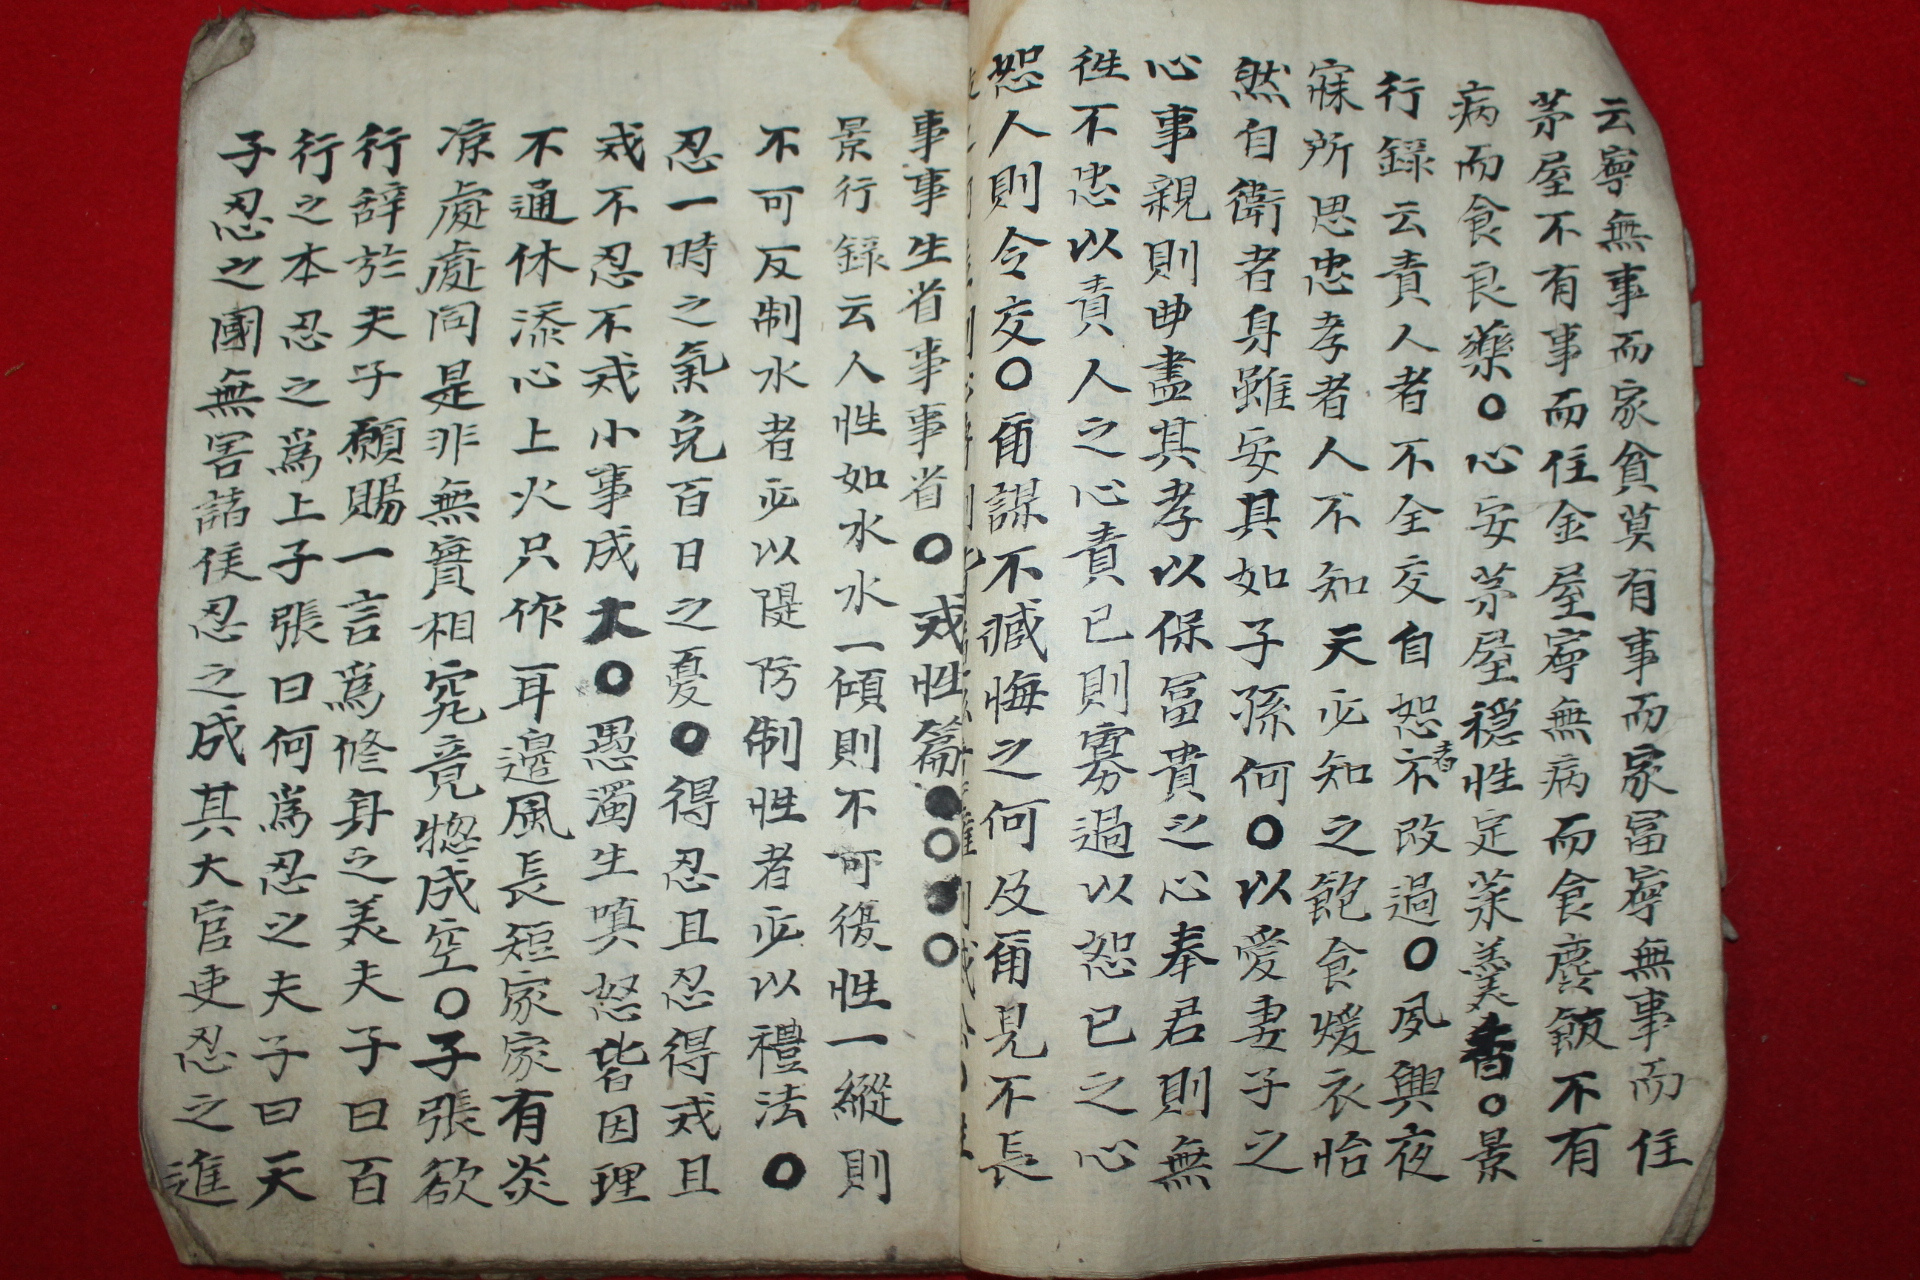 云寧無事而家貧莫有事而家富寧無事而住
茅屋不有事而住金屋寧無病而食麄飯不有
病而食良藥○心安茅屋穩性定菜羹香○景
行錄云責人者不全交自恕者不改過○夙興夜
寐所思忠孝者人不知天必知之飽食煖衣怡
然自衛者身雖安其如子孫何○以愛妻子之
心事親則曲盡其孝以保冨貴之心奉君則無
徃不忠以責人之心責已則寡過以恕已之心
恕人則令交○甬謀不臧悔之何及甬見不長
事事生省事事省○戒性篇●○●○
景行録云人性如水水一傾則不可復性一縱則
不可反制水者必以隄防制性者必以禮法○
忍一時之氣免百日之憂○得忍且忍得戒且
戒不忍不戒小事成大○愚濁生嗔怒皆因理
不通休添心上火只作耳邊風長短家家有炎
凉處處同是非無實相究竟惣成空○子張欲
行辞於夫子願賜一言爲修身之美夫子曰百
行之本忍之爲上子張曰何爲忍之夫子曰天
子忍之國無害諸侯忍之成其大官吏忍之進